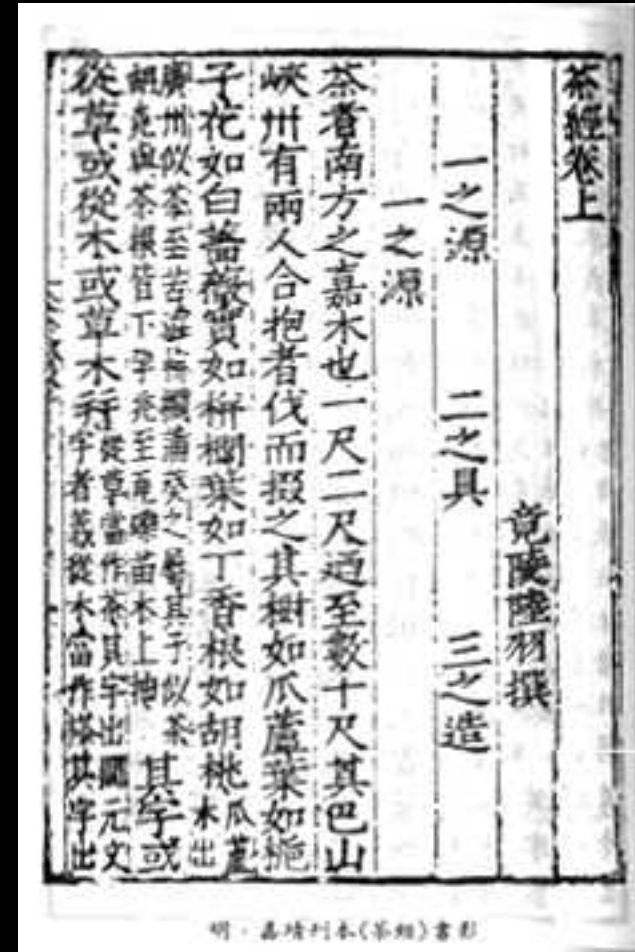 茶經卷上
竟陵陸羽撰
一之源 二之具 三之造
一之源
茶者南方之嘉木也一尺二尺迺至數十尺其巴山
峽州有兩人合抱者伐而掇之其樹如瓜蘆葉如梔
子花如白薔薇實如栟櫚葉如丁香根如胡桃瓜蘆木出
廣州似茶至苦澁栟櫚蒲葵之屬其子似茶胡桃與茶根皆下孕兆至瓦礫苗木上抽其字或
從草或從木或草木并從草當作茶其字出開元文字音義從木當作搽其字出
明·嘉靖刊本(茶經)書影